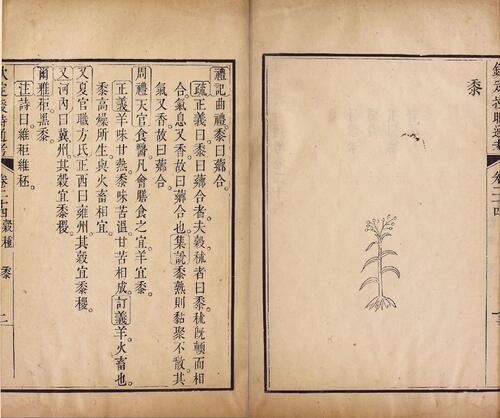 欽定授時通考 卷二十四
黍
禮記曲禮黍曰薌合。
疏正義曰黍曰薌合者夫穀秫者曰黍秫既輭而相
合。氣息又香故曰薌合也集說黍熟則黏聚不散其
氣又香故曰薌合
周禮天官食醫凡會膳食之宜羊宜黍。
正義羊味甘熱黍味苦溫甘苦相成訂義羊火畜也。
黍高燥所生與火畜相宜。
又夏官職方氏正西曰雍州其穀宜黍稷。
又河內曰冀州其穀宜黍稷。
爾雅秬黑黍。
注詩曰維秬維秠。
欽定授時通考 卷二十四 穀種 黍 二